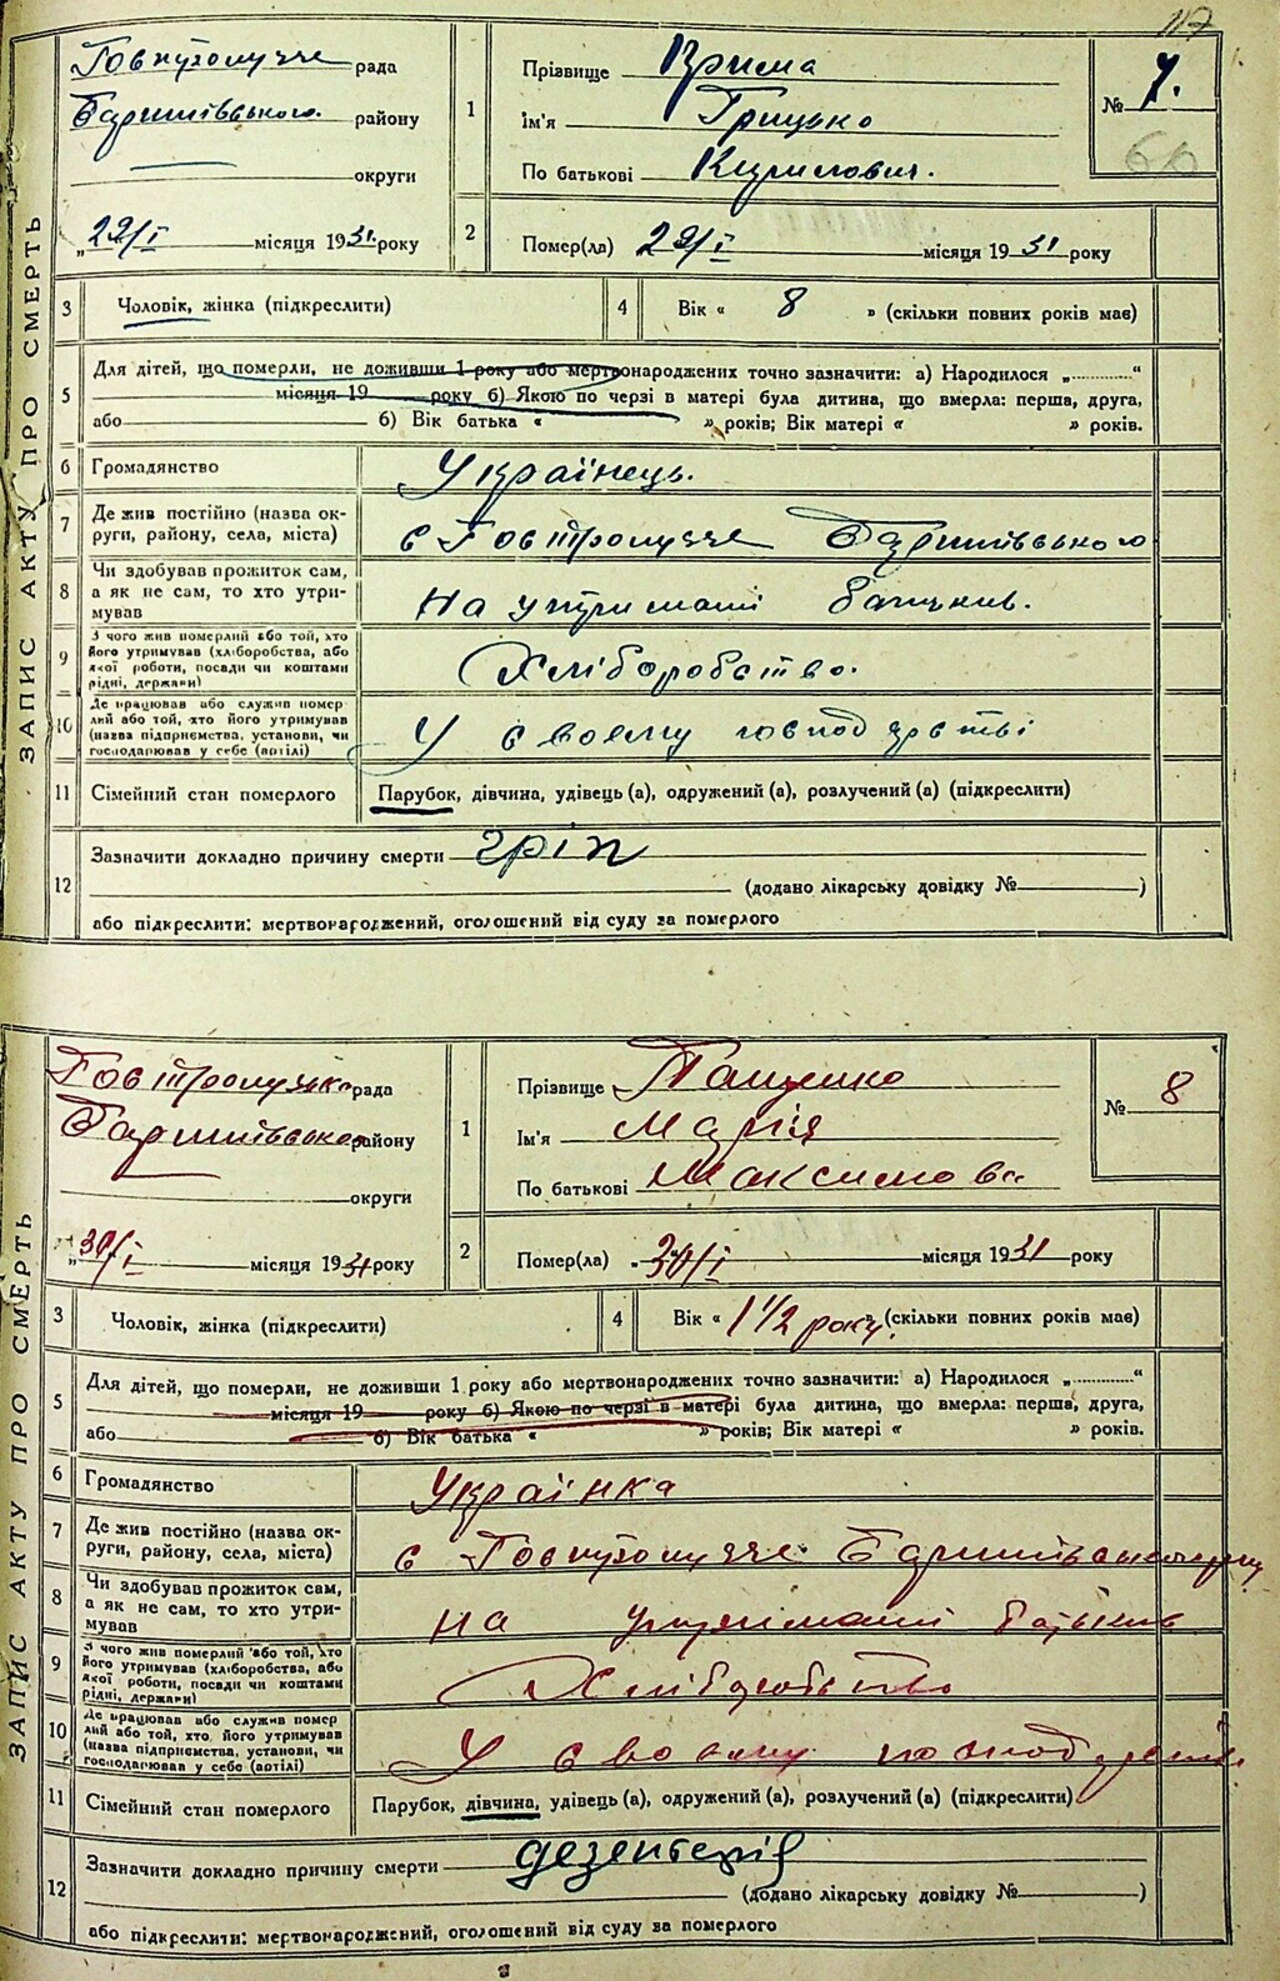 117
ЗАПИС АКТУ ПРО СМЕРТЬ
рада
Баришівського району
округи
„29/I місяця 1931 року
1
Прізвище Крима
Ім'я Грицько
По батькові Кирилович.
№ 7.
66
2
Помер(ла) 29/I місяця 1931 року
3 Чоловік, жінка (підкреслити)
4 Вік « 8 » (скільки повних років має)
5 Для дітей, що померли, не доживши 1 року або мертвонароджених точно зазначити: а) Народилося „............“
місяця 19 року б) Якою по черзі в матері була дитина, що вмерла: перша, друга,
або б) Вік батька « » років; Вік матері « » років.
6 Громадянство Українець.
7 Де жив постійно (назва ок-
руги, району, села, міста) с Гостролуччє Баришівського
8 Чи здобував прожиток сам,
а як не сам, то хто утри-
мував на утриманні батьків.
9 З чого жив померлий або той, хто
його утримував (хліборобства, або
якої роботи, посади чи коштами
рідні, держави) Хліборобство.
10 Де працював або служив помер
лий або той, хто його утримував
(назва підприємства, установи, чи
господарював у себе (артілі) У своєму господарстві
11 Сімейний стан померлого Парубок, дівчина, удівець (а), одружений (а), розлучений (а) (підкреслити)
12 Зазначити докладно причину смерти гріп
(додано лікарську довідку № )
або підкреслити: мертвонароджений, оголошений від суду за померлого
ЗАПИС АКТУ ПРО СМЕРТЬ
рада
району
округи
„30/I місяця 1931 року
1
Прізвище Пащенко
Ім'я Марія
По батькові Максимова
№ 8
2
Помер(ла) „30/I місяця 1931 року
3 Чоловік, жінка (підкреслити)
4 Вік « 1 1/2 року. (скільки повних років має)
5 Для дітей, що померли, не доживши 1 року або мертвонароджених точно зазначити: а) Народилося „............“
місяця 19 року б) Якою по черзі в матері була дитина, що вмерла: перша, друга,
або б) Вік батька « » років; Вік матері « » років.
6 Громадянство Українка
7 Де жив постійно (назва ок-
руги, району, села, міста) с Гостролуччє
8 Чи здобував прожиток сам,
а як не сам, то хто утри-
мував на утриманні батьків
9 З чого жив померлий або той, хто
його утримував (хліборобства, або
якої роботи, посади чи коштами
рідні, держави) Хліборобство
10 Де працював або служив помер
лий або той, хто його утримував
(назва підприємства, установи, чи
господарював у себе (артілі) У своєму господарстві
11 Сімейний стан померлого Парубок, дівчина, удівець (а), одружений (а), розлучений (а) (підкреслити)
12 Зазначити докладно причину смерти дезентерія
(додано лікарську довідку № )
або підкреслити: мертвонароджений, оголошений від суду за померлого